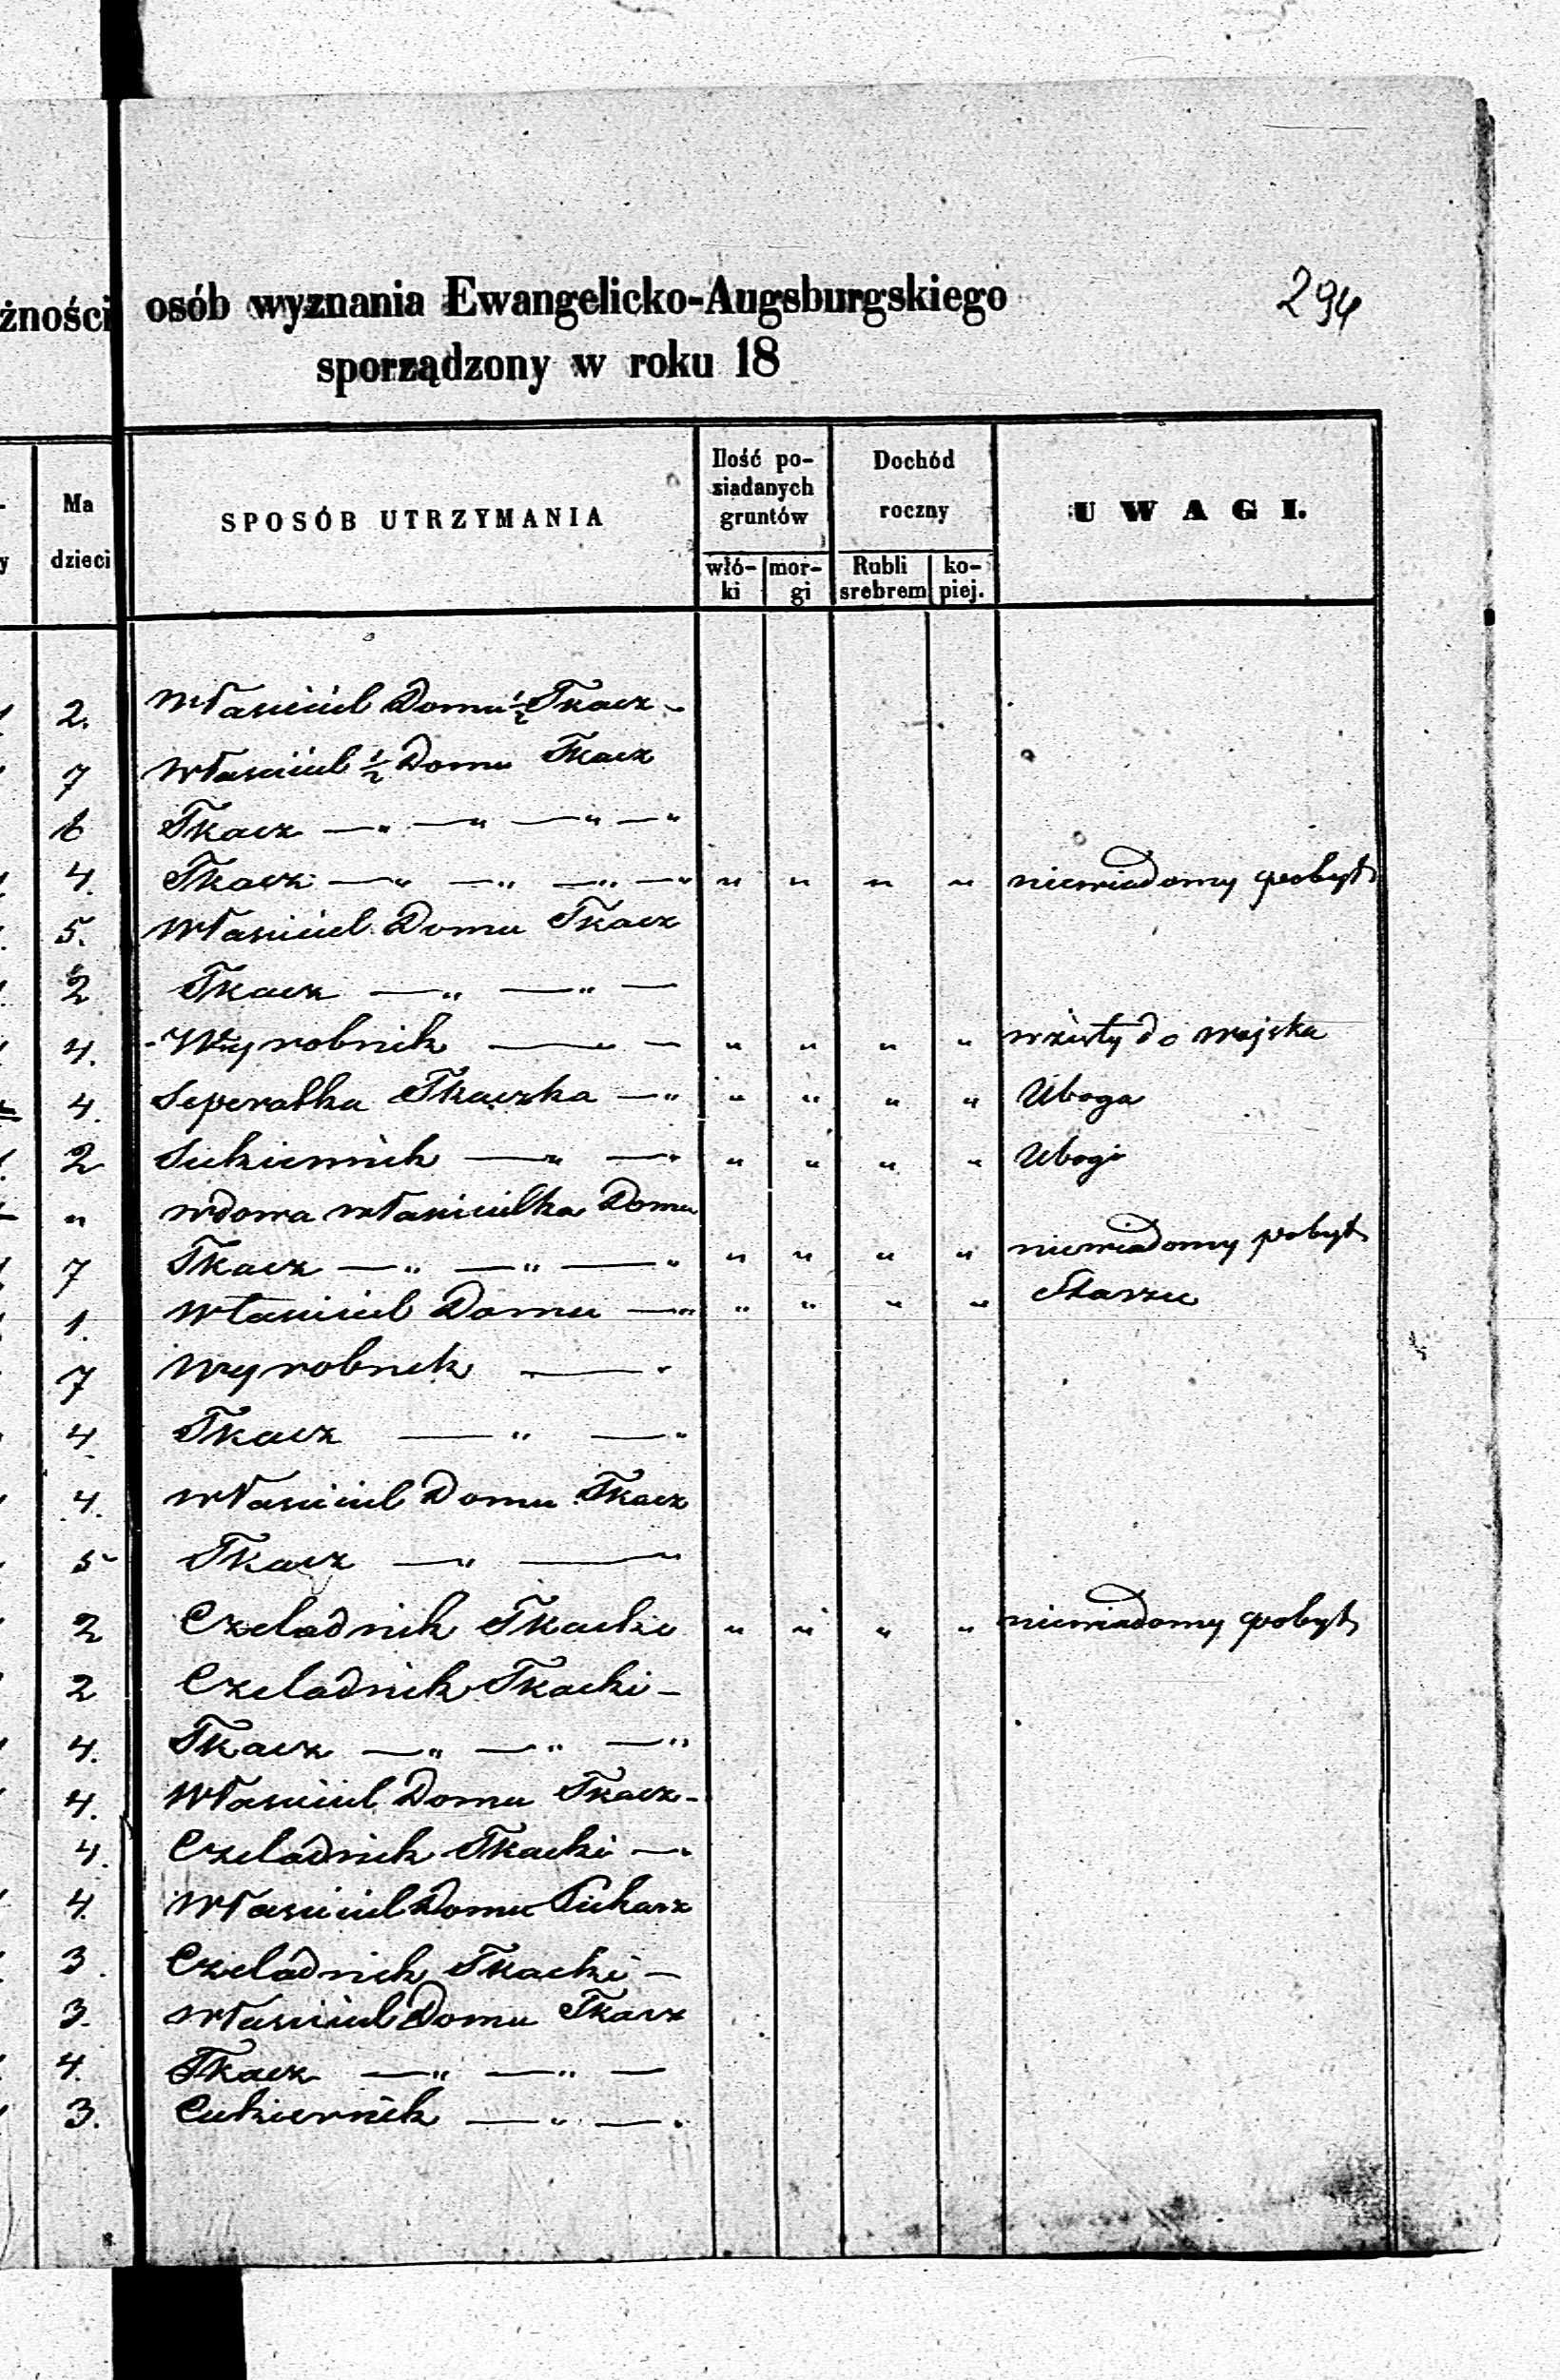 294
żności osób wyznania Ewangelicko-Augsburgskiego
sporządzony w roku 18
Ma dzieci
SPOSÓB UTRZYMANIA
Ilość po-
siadanych
gruntów
włó-
ki
mor-
gi
Dochód
roczny
Rubli
srebrem
ko-
piej.
UWAGI.
2. Właściciel Domu ½ Tkacz -
7 Właściciel ½ Domu Tkacz
6 Tkacz —„ —„ —„ —„
4. Tkacz —„ —„ —„ —„ „ „ „ „ niewiadomy pobyt
5. Właściciel Domu Tkacz
2 Tkacz —„ —„ —
4. Wyrobnik — — „ „ „ „ wzięty do wojska
4. Seperatka Tkaczka —„ „ „ „ „ Uboga
2 Sukiennik —„ —„ „ „ „ „ Ubogi
„ wdowa właścicielka Domu
7 Tkacz —„ —„ —„ „ „ „ „ niewiadomy pobyt
1. Właściciel Domu —„ „ „ „ „ Starzec
7 Wyrobnik —„
4 Tkacz —„ —„
4. Właściciel Domu Tkacz
5 Tkacz —„ —„
2 Czeladnik Tkacki „ „ „ „ niewiadomy pobyt
2 Czeladnik Tkacki -
4. Tkacz —„ —„ —„
4. Właściciel Domu Tkacz -
4. Czeladnik Tkacki —„
4. Właściciel Domu Piekarz
3. Czeladnik Tkacki —
3. Właściciel Domu Tkacz
4. Tkacz —„ —„ —
3. Cukiernik —„ —„